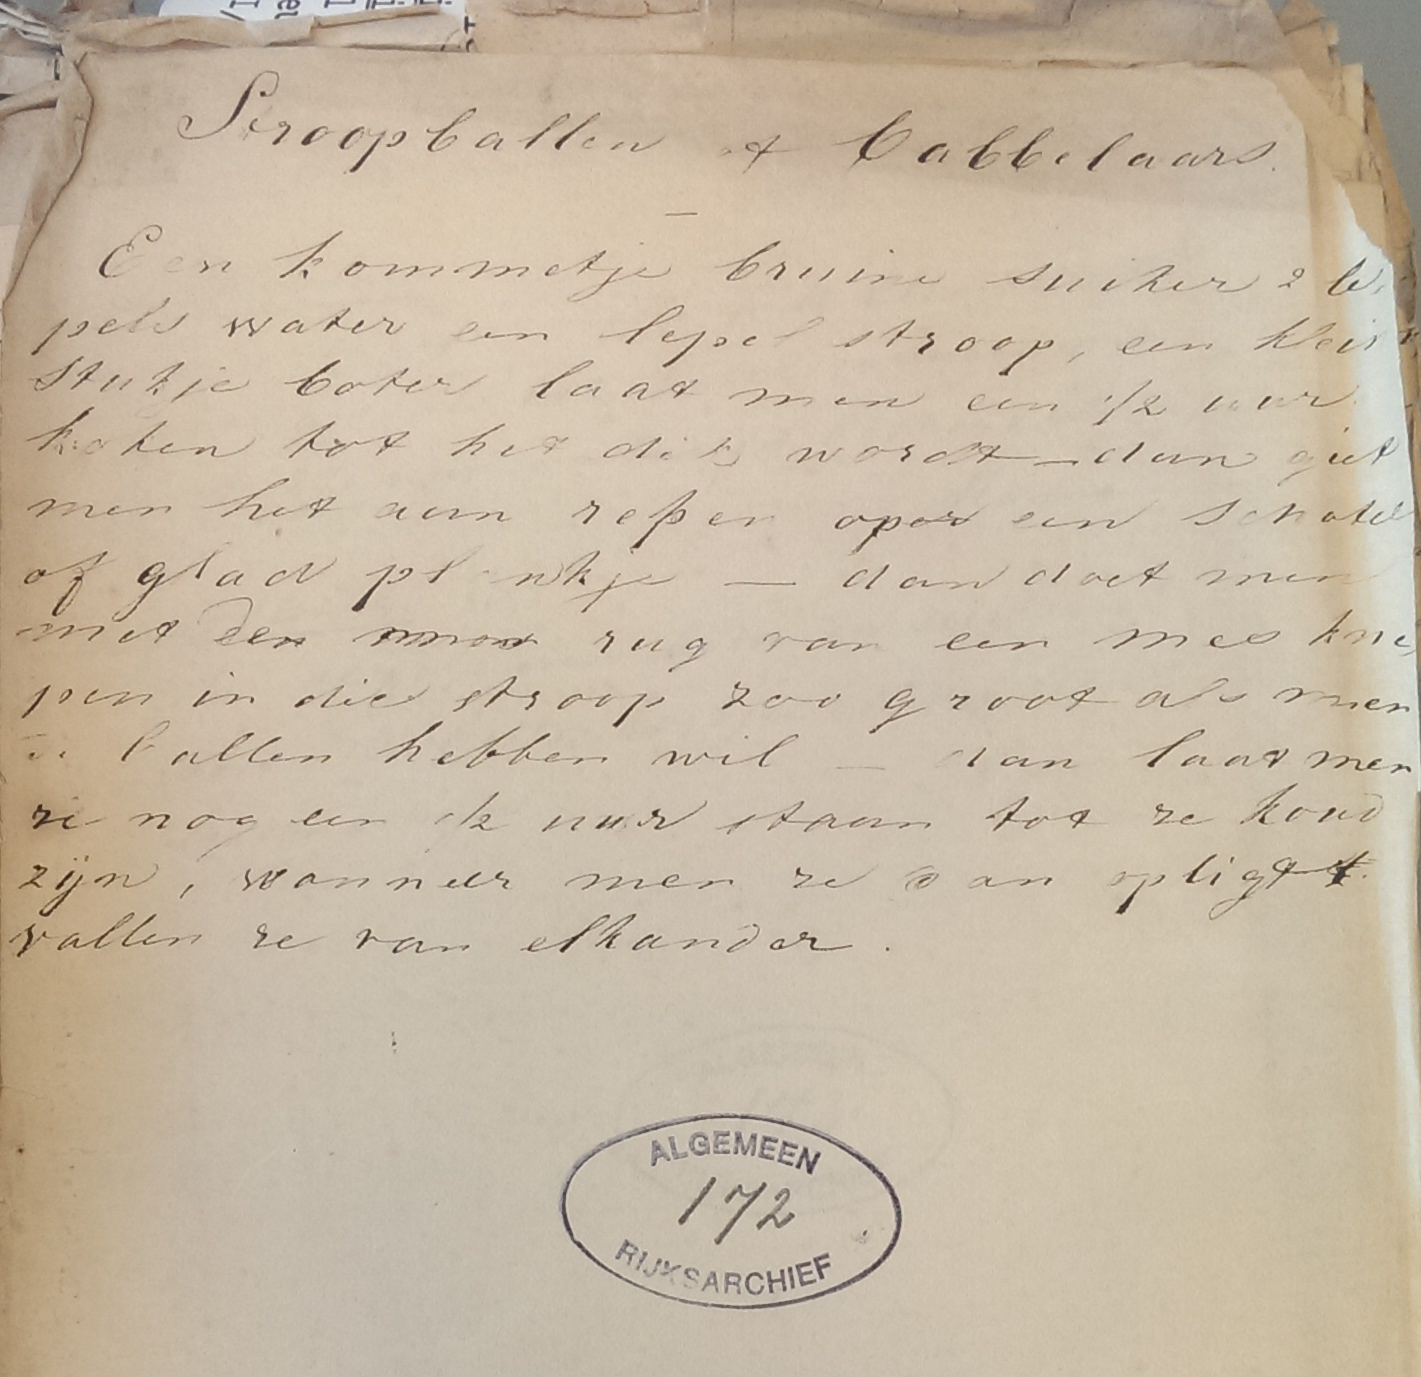 Stroopballen of Babbelaars.
Een kommetje bruine suiker 2 le
pels water een lepel stroop, een klein
stukje boter laat men een 1/2 uur
koken tot het dik wordt – dan giet
men het aan repen op een schotel
of glad plankje — dan doet men
met den rug van een mes kne
pen in die stroop zoo groot als men
de ballen hebben wil — dan laat men
ze nog een 1/2 uur staan tot ze koud
zijn, wanneer men ze dan opligt
vallen ze van elkander.
ALGEMEEN
172
RIJKSARCHIEF